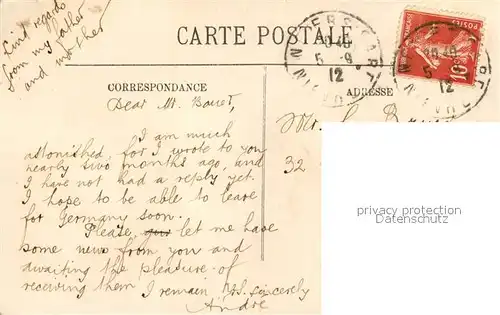 Kind regards
from my father
and mother
CARTE POSTALE
CORRESPONDANCE
ADRESSE
NEVERS GARE
20 40
5 -9
12
Dear M. Barret,
I am much
astonished, for I wrote to you
nearly two months ago, and
I have not had a reply yet.
I hope to be able to leave
for Germany soon.
Please let me have
some news from you and
awaiting the pleasure of
receiving them I remain Yrs. sincerely
André
Mr.
32
10
privacy protection